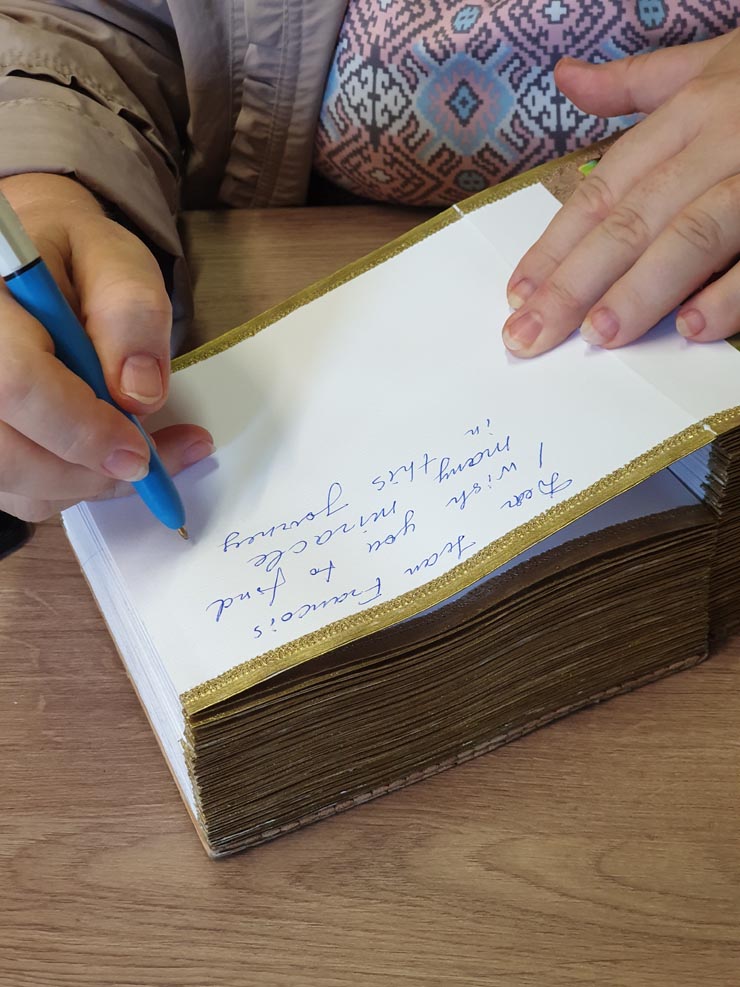 Dear Jean Francois
I wish you to find
many miracle
in this Journey